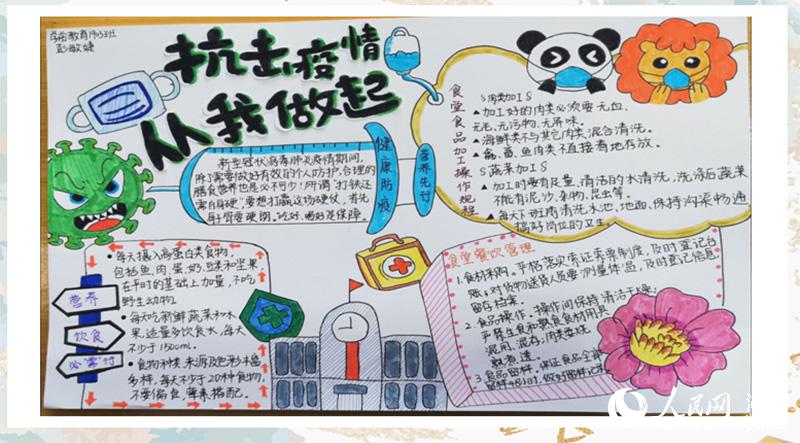 学前教育1903班
彭敏婕
抗击疫情
从我做起
新型冠状病毒肺炎疫情期间,
除了需要做好有效的个人防护,合理的
膳食营养也是必不可少!所谓"打铁还
需自身硬",要想打赢这场硬仗,首先
身体要硬朗。吃好、喝好是保障。
健康防疫
营养先行
食堂食品加工操作规程
S肉类加工S
▲加工好的肉类必须要无血、
无毛、无污物、无异味。
▲海鲜类不与其它肉类混合清洗。
▲禽、畜、鱼肉类不直接着地存放。
S蔬菜加工S
▲加工时要有足量、清洁的水清洗,洗涤后蔬菜
不能有泥沙、杂物、昆虫等。
▲每天下班前清洗水池、地面,保持沟渠畅通
搞好岗位的卫生。
营养
饮食
必"需"行
•每天摄入高蛋白类食物,
包括鱼、肉、蛋、奶、豆类和坚果,
在平时的基础上加量,不吃
野生动物。
•每天吃新鲜蔬菜和水
果,适量多饮食水,每天
不少于1500ml。
•食物种类、来源及色彩丰富
多样,每天不少于20种食物,
不要偏食,荤素搭配。
食堂餐饮管理
1.食材采购。严格落实索证索票制度,及时登记台
账,对货物送货人员要测量体温,及时登记信息
留存档案。
2.食品操作。操作间保持清洁干燥,
严禁生食和熟食食材用具
混用、混存,肉类要烧
熟煮透。
3.食品留样。保证食品全部
留样48小时,做好留样记录。
人民网